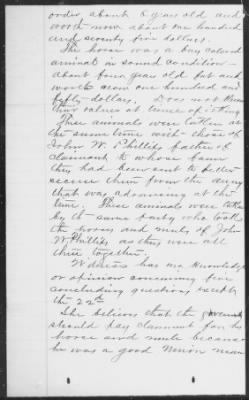 order about 6 years old and
worth now about one hundred
and seventy five dollars.
The horse was a bay colored
animal in sound condition -
about four years old fat and
worth even one hundred and
fifty dollars. Does not know
their values at time of taking
These animals were taken at
the same time with those of
John W. Phillips father of
claimant to whose farm
they had been sent to better
secure them from the army
that was advancing at the
time. These animals were taken
by the same party who took
the horses and mules of John
W Phillips as they were all
there together.
Witness has no knowledge
or opinion concerning five
concluding questions except
the 22nd
She believes that the government
should pay claimant for his
horse and mule because
he was a good Union man